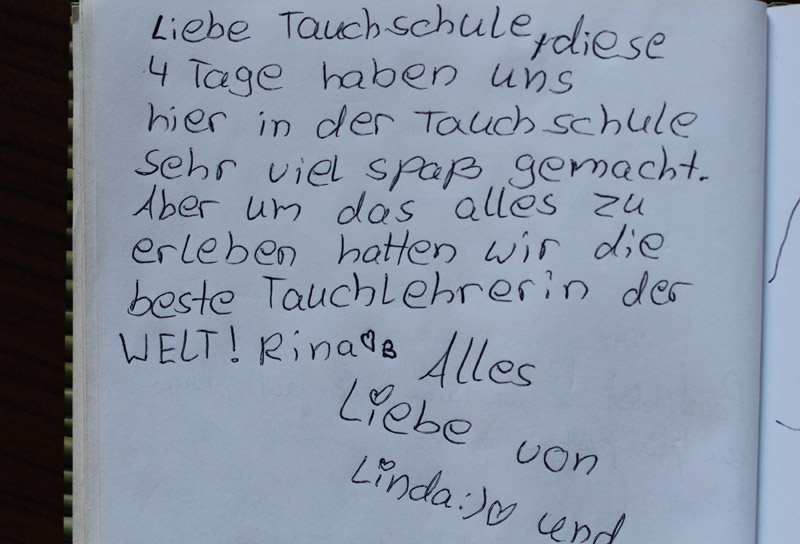 Liebe Tauchschule, diese
4 Tage haben uns
hier in der Tauchschule
sehr viel spaß gemacht.
Aber um das alles zu
erleben hatten wir die
beste Tauchlehrerin der
WELT! Rina♡B
Alles
Liebe von
Linda:)♡ und